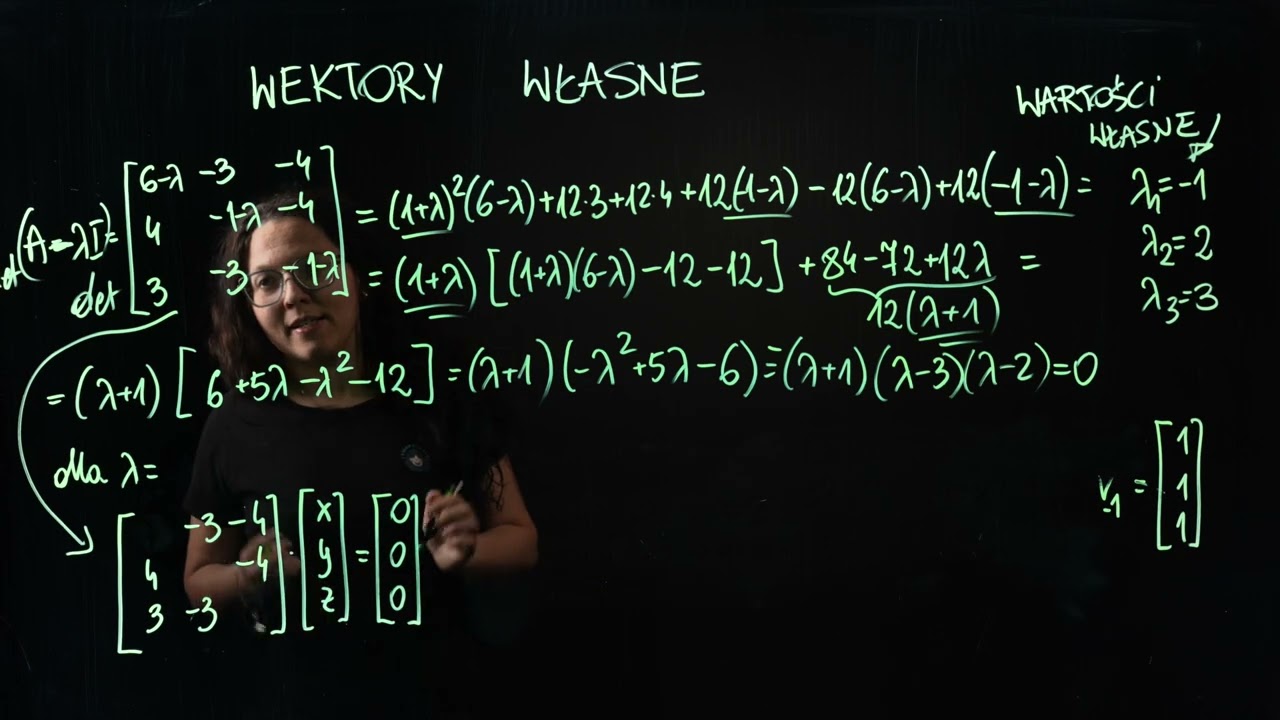 WEKTORY WŁASNE
WARTOŚCI
WŁASNE
det(A-λI)= det [6-λ -3 -4
4 -1-λ -4
3 -3 -1-λ]
= (1+λ)²(6-λ)+12·3+12·4+12(-1-λ)-12(6-λ)+12(-1-λ)=
= (1+λ)[(1+λ)(6-λ)-12-12]+84-72+12λ =
12(λ+1)
= (λ+1)[6+5λ-λ²-12]=(λ+1)(-λ²+5λ-6)=(λ+1)(λ-3)(λ-2)=0
λ₁=-1
λ₂=2
λ₃=3
dla λ=
[ -3 -4
4 -4
3 -3 ] · [x
y
z] = [0
0
0]
v₋₁ = [1
1
1]